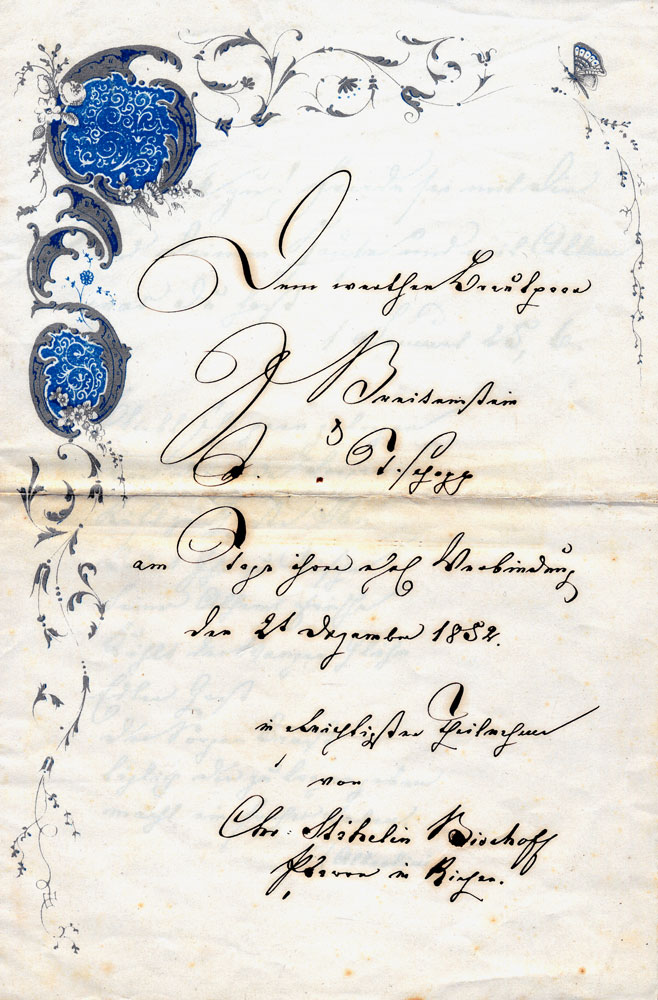 Dem werthen Brautpaar
J Breitenstein
&
A. Tschopp
am Tage ihrer ehel Verbindung
den 2t Dezember 1852.
in aufrichtigster Theilnahme
von
Chr: Stähelin Bischoff
Pfarrer in Riehen.